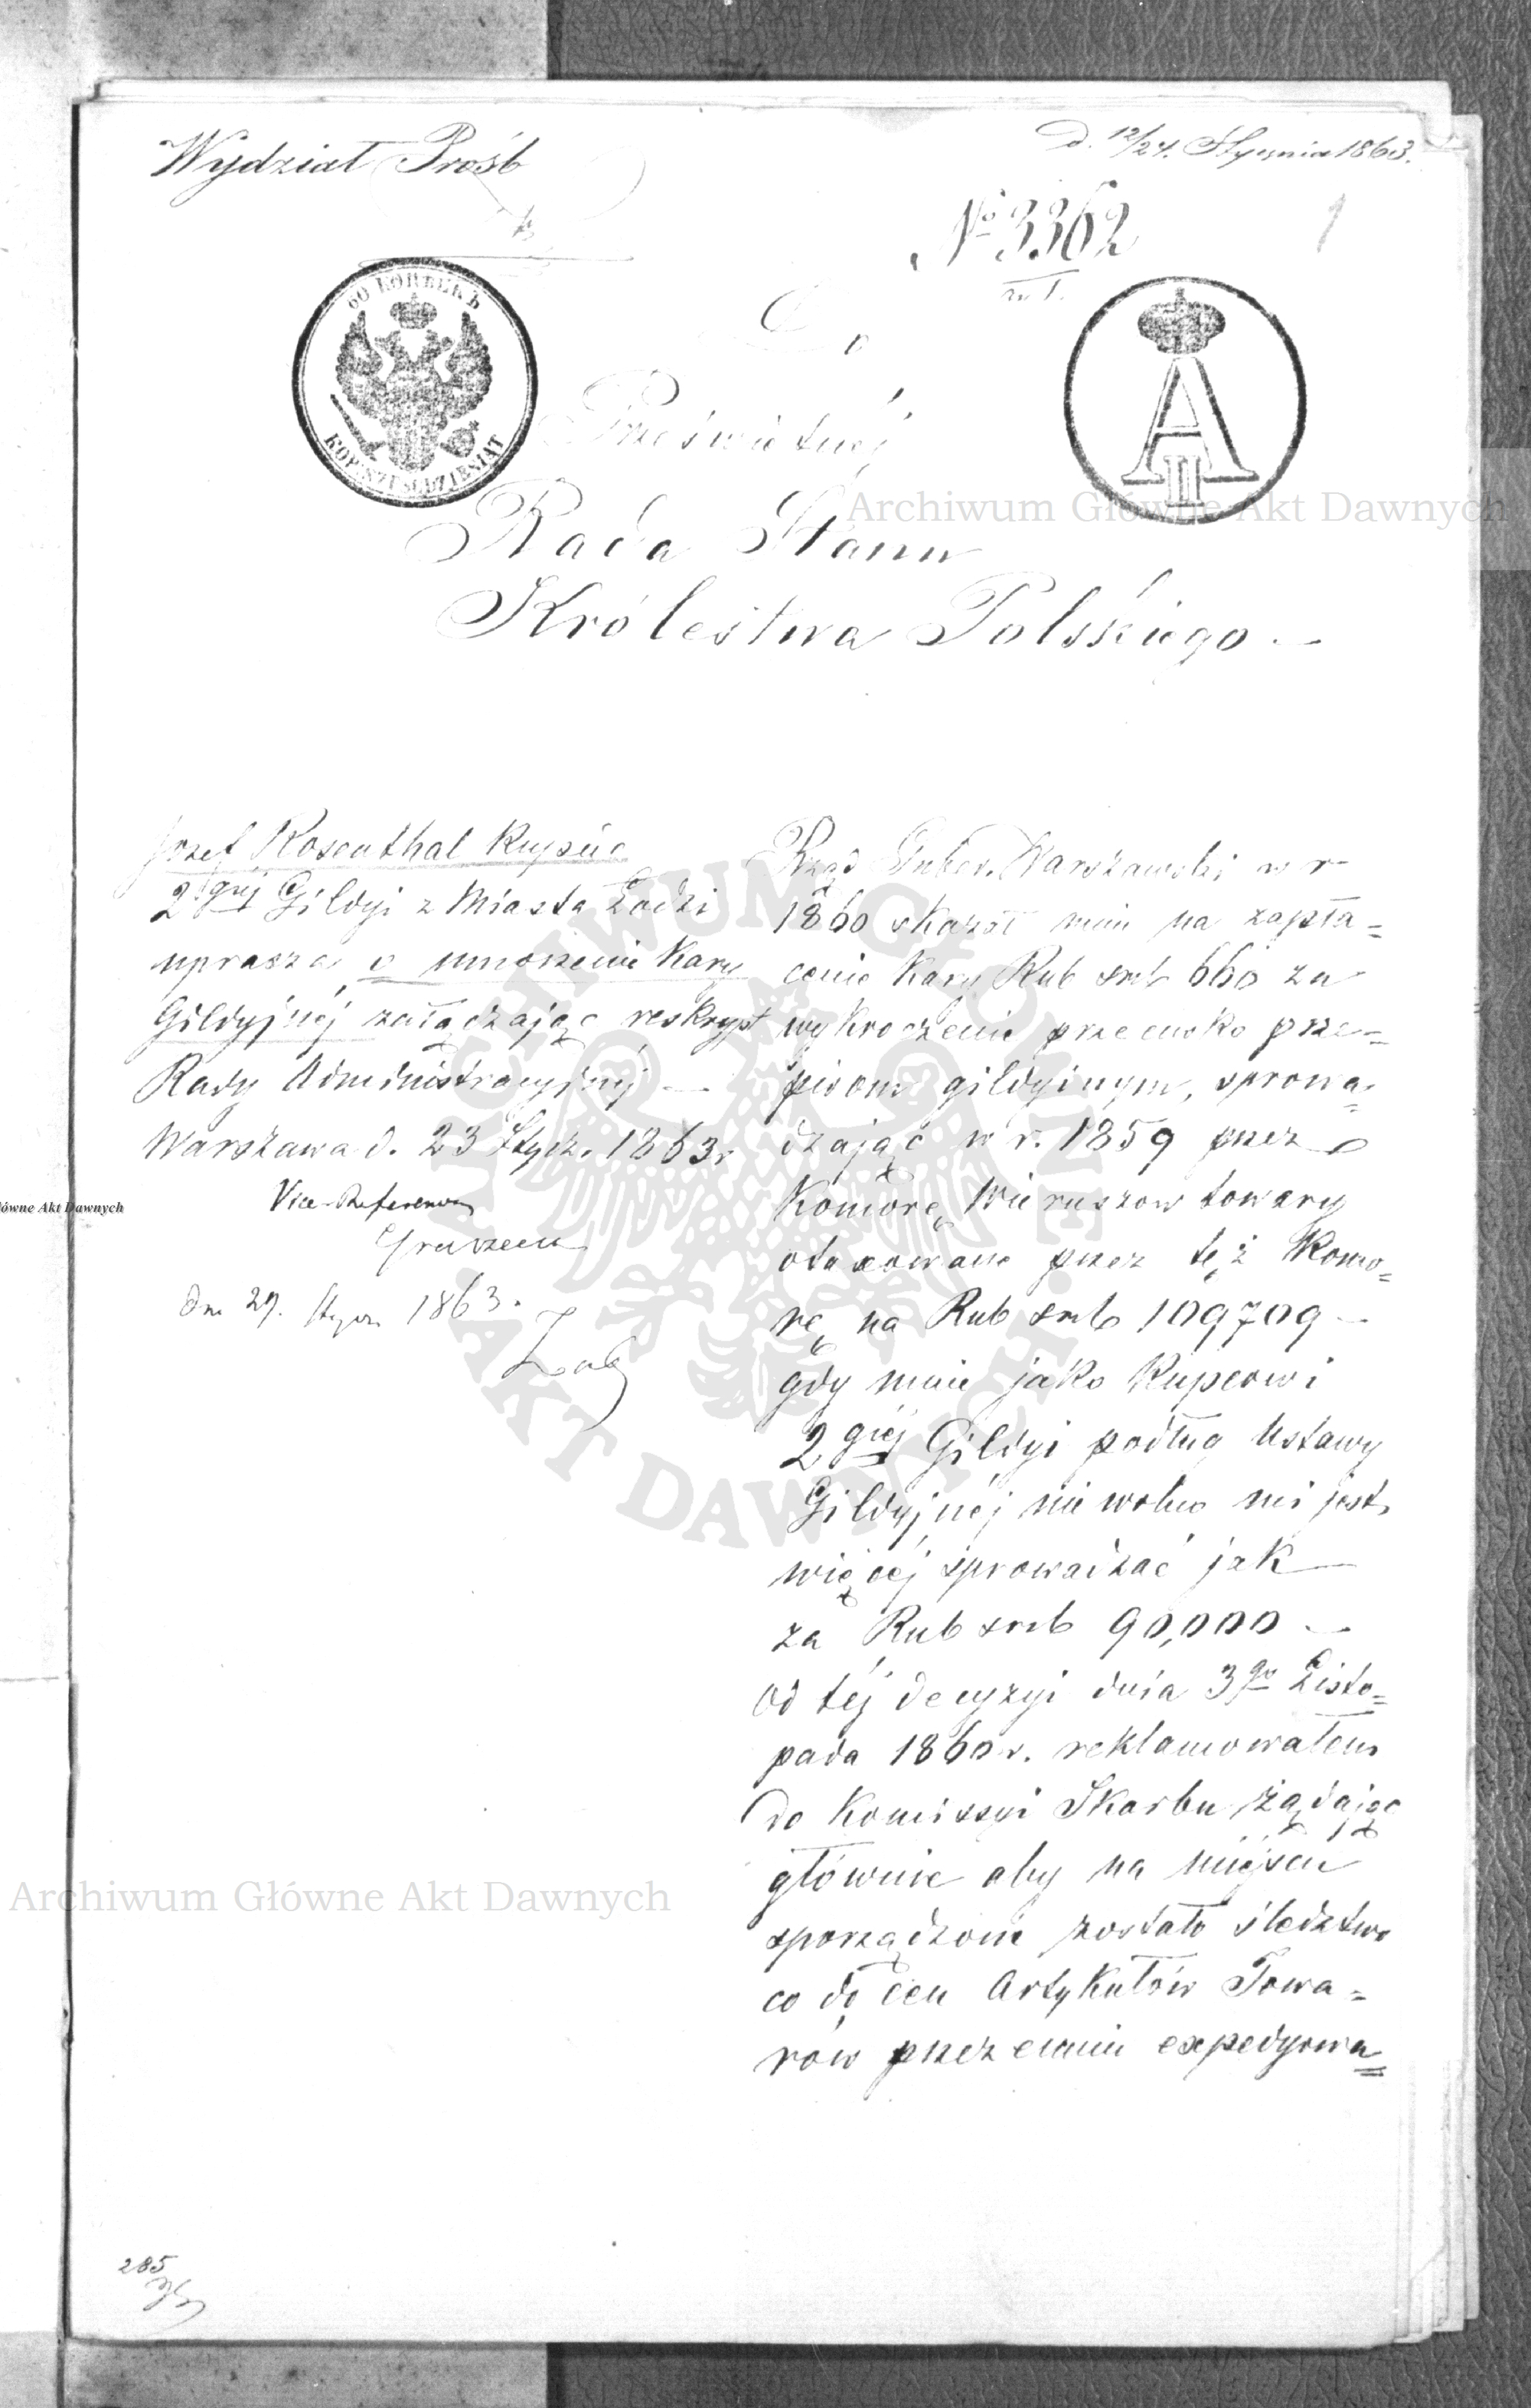 Wydział Próśb
d. 12/24. Stycznia 1863.
№ 3362
1
60 КОПѢЕКЪ
KOP: SZEŚĆDZIESIĄT
A II
Do
Prześwietnéj
Rada Stanu
Królestwa Polskiego —
Józef Rosenthal Kupiec
2giéj Gildyi z Miasta Łodzi
uprasza o umorzenie Kary
Gildyjnéj załączając reskrypt
Rady Administracyjnéj —
Warszawa d. 23 Stycz. 1863 r
Vice-Referent
dn 29. Stycz. 1863.
Rząd Guber. Warszawski w r
1860 skazał mnie na zapła=
cenie Kary Rub srb 660 za
wykroczenie przeciwko prze=
pisom gildyinym, sprowa=
dzając w r. 1859 przez
Komorę Wieruszow towary
otaxowane przez też Komo=
rę na Rub srb 109709 —
gdy mnie jako Kupcowi
2giéj Gildyi podług Ustawy
Gildyjnéj nie wolno mi jest,
więcéj sprowadzać jak —
za Rub srb 90,000 —
Od téj decyzyi dnia 3go Listo=
pada 1860 r. reklamowałem
do Komissyi Skarbu żądając
głównie aby na miejscu
sporządzone zostało śledztwo
co do cen Artykułów Towa=
rów przezemnie expedyowa=
285
Archiwum Główne Akt Dawnych
Archiwum Główne Akt Dawnych
ówne Akt Dawnych
ARCHIWUM GŁÓWNE
AKT DAWNYCH